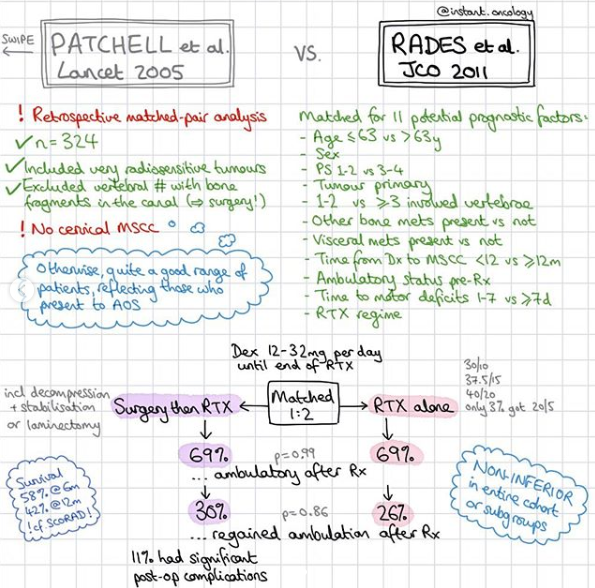 @instant.oncology
SWIPE
PATCHELL et al.
Lancet 2005
vs.
RADES et al.
JCO 2011
! Retrospective matched-pair analysis
✓ n=324
✓ Included very radiosensitive tumours
✓ Excluded vertebral # with bone
fragments in the canal (⇒ surgery!)
! No cervical MSCC
Otherwise, quite a good range of
patients, reflecting those who
present to AOS
Matched for 11 potential prognostic factors:
- Age ≤63 vs >63y
- Sex
- PS 1-2 vs 3-4
- Tumour primary
- 1-2 vs ≥3 involved vertebrae
- Other bone mets present vs not
- Visceral mets present vs not
- Time from Dx to MSCC <12 vs ≥12m
- Ambulatory status pre-Rx
- Time to motor deficits 1-7 vs ≥7d
- RTX regime
Dex 12-32mg per day
until end of RTX
incl decompression
+ stabilisation
or laminectomy
Surgery then RTX
Matched
1:2
RTX alone
30/10
37.5/15
40/20
only 3% got 20/5
69%
p=0.99
69%
... ambulatory after Rx
30%
p=0.86
26%
... regained ambulation after Rx
11% had significant
post-op complications
Survival
58% @6m
42% @12m
! cf SCORAD !
NON-INFERIOR
in entire cohort
or subgroups